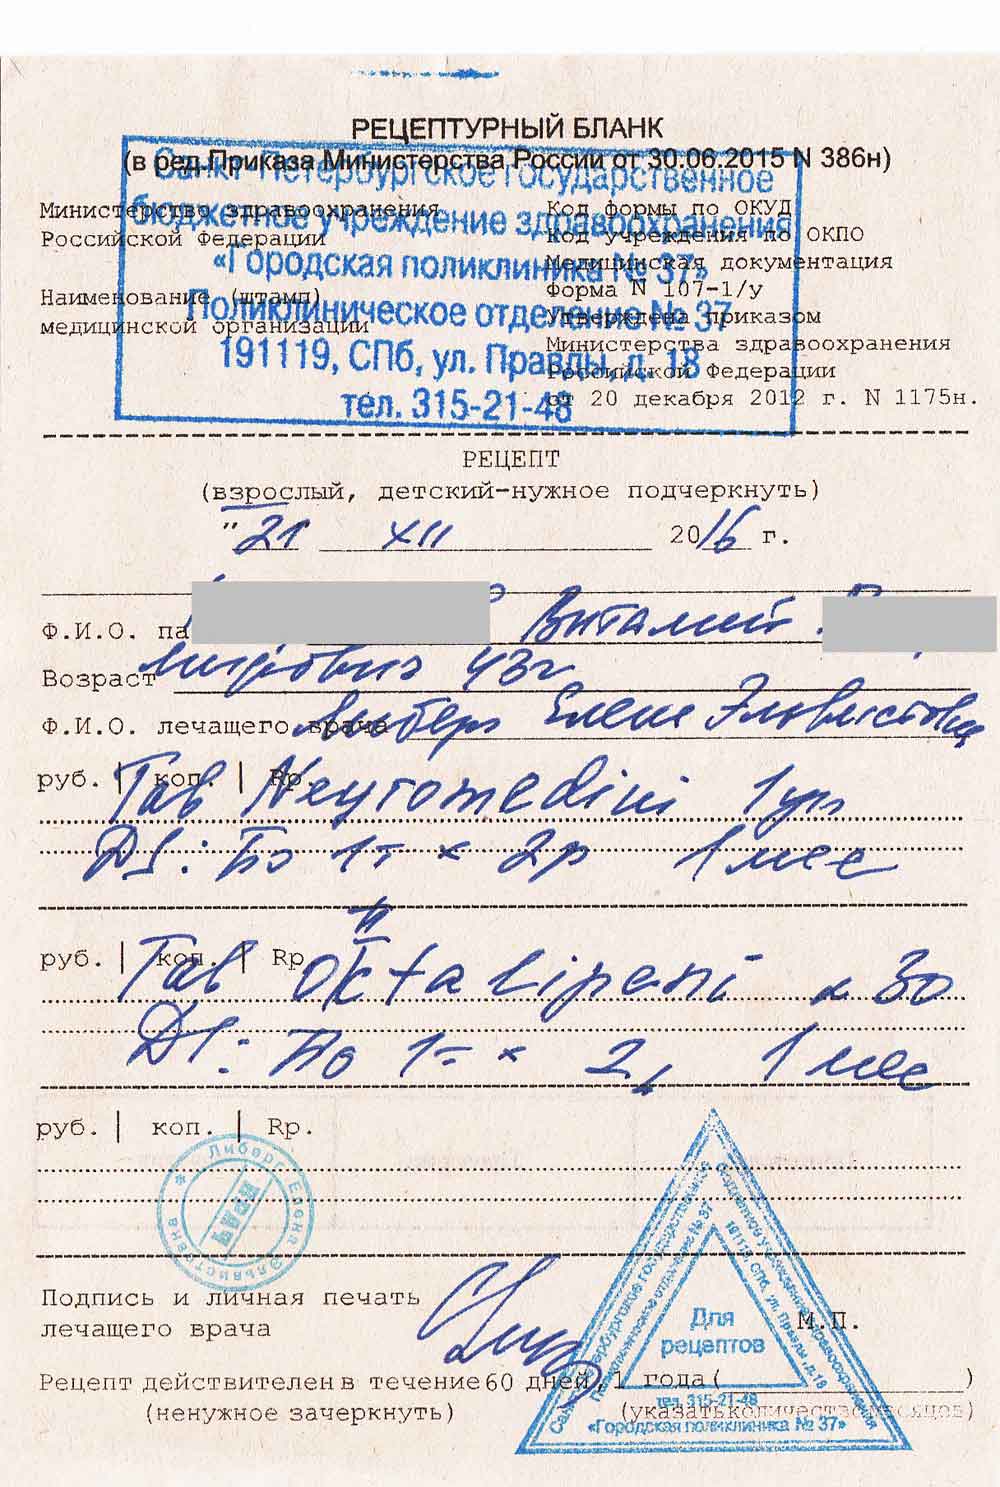 РЕЦЕПТУРНЫЙ БЛАНК
(в ред.Приказа Министерства России от 30.06.2015 N 386н)
Санкт-Петербургское государственное
бюджетное учреждение здравоохранения
«Городская поликлиника № 37»
Поликлиническое отделение № 37
191119, СПб, ул. Правды, д. 18
тел. 315-21-48
Министерство здравоохранения
Российской Федерации
Наименование (штамп)
медицинской организации
Код формы по ОКУД
Код учреждения по ОКПО
Медицинская документация
Форма N 107-1/у
Утверждена приказом
Министерства здравоохранения
Российской Федерации
от 20 декабря 2012 г. N 1175н.
РЕЦЕПТ
(взрослый, детский-нужное подчеркнуть)
"21 XII 2016 г.
Ф.И.О. па Виталий
Возраст 43г
Ф.И.О. лечащего врача Либерг Елена Эльвистовна
руб. | коп. | Rp.
Tab Neyromedini 1уп
DS: По 1т × 2р 1 мес
руб. | коп. | Rp
Tab Oktalipeni × 30
DS: По 1т × 2 1 мес
руб. | коп. | Rp.
* Либерг Елена Эльвистовна
ВРАЧ
Подпись и личная печать
лечащего врача
М.П.
Рецепт действителен в течение 60 дней, 1 года ( )
(ненужное зачеркнуть) (указать количество месяцев)
Санкт-Петербургское государственное бюджетное учреждение здравоохранения
«Городская поликлиника № 37»
Поликлиническое отделение № 37
191119, СПб, ул. Правды, д.18
тел. 315-21-48
Для
рецептов